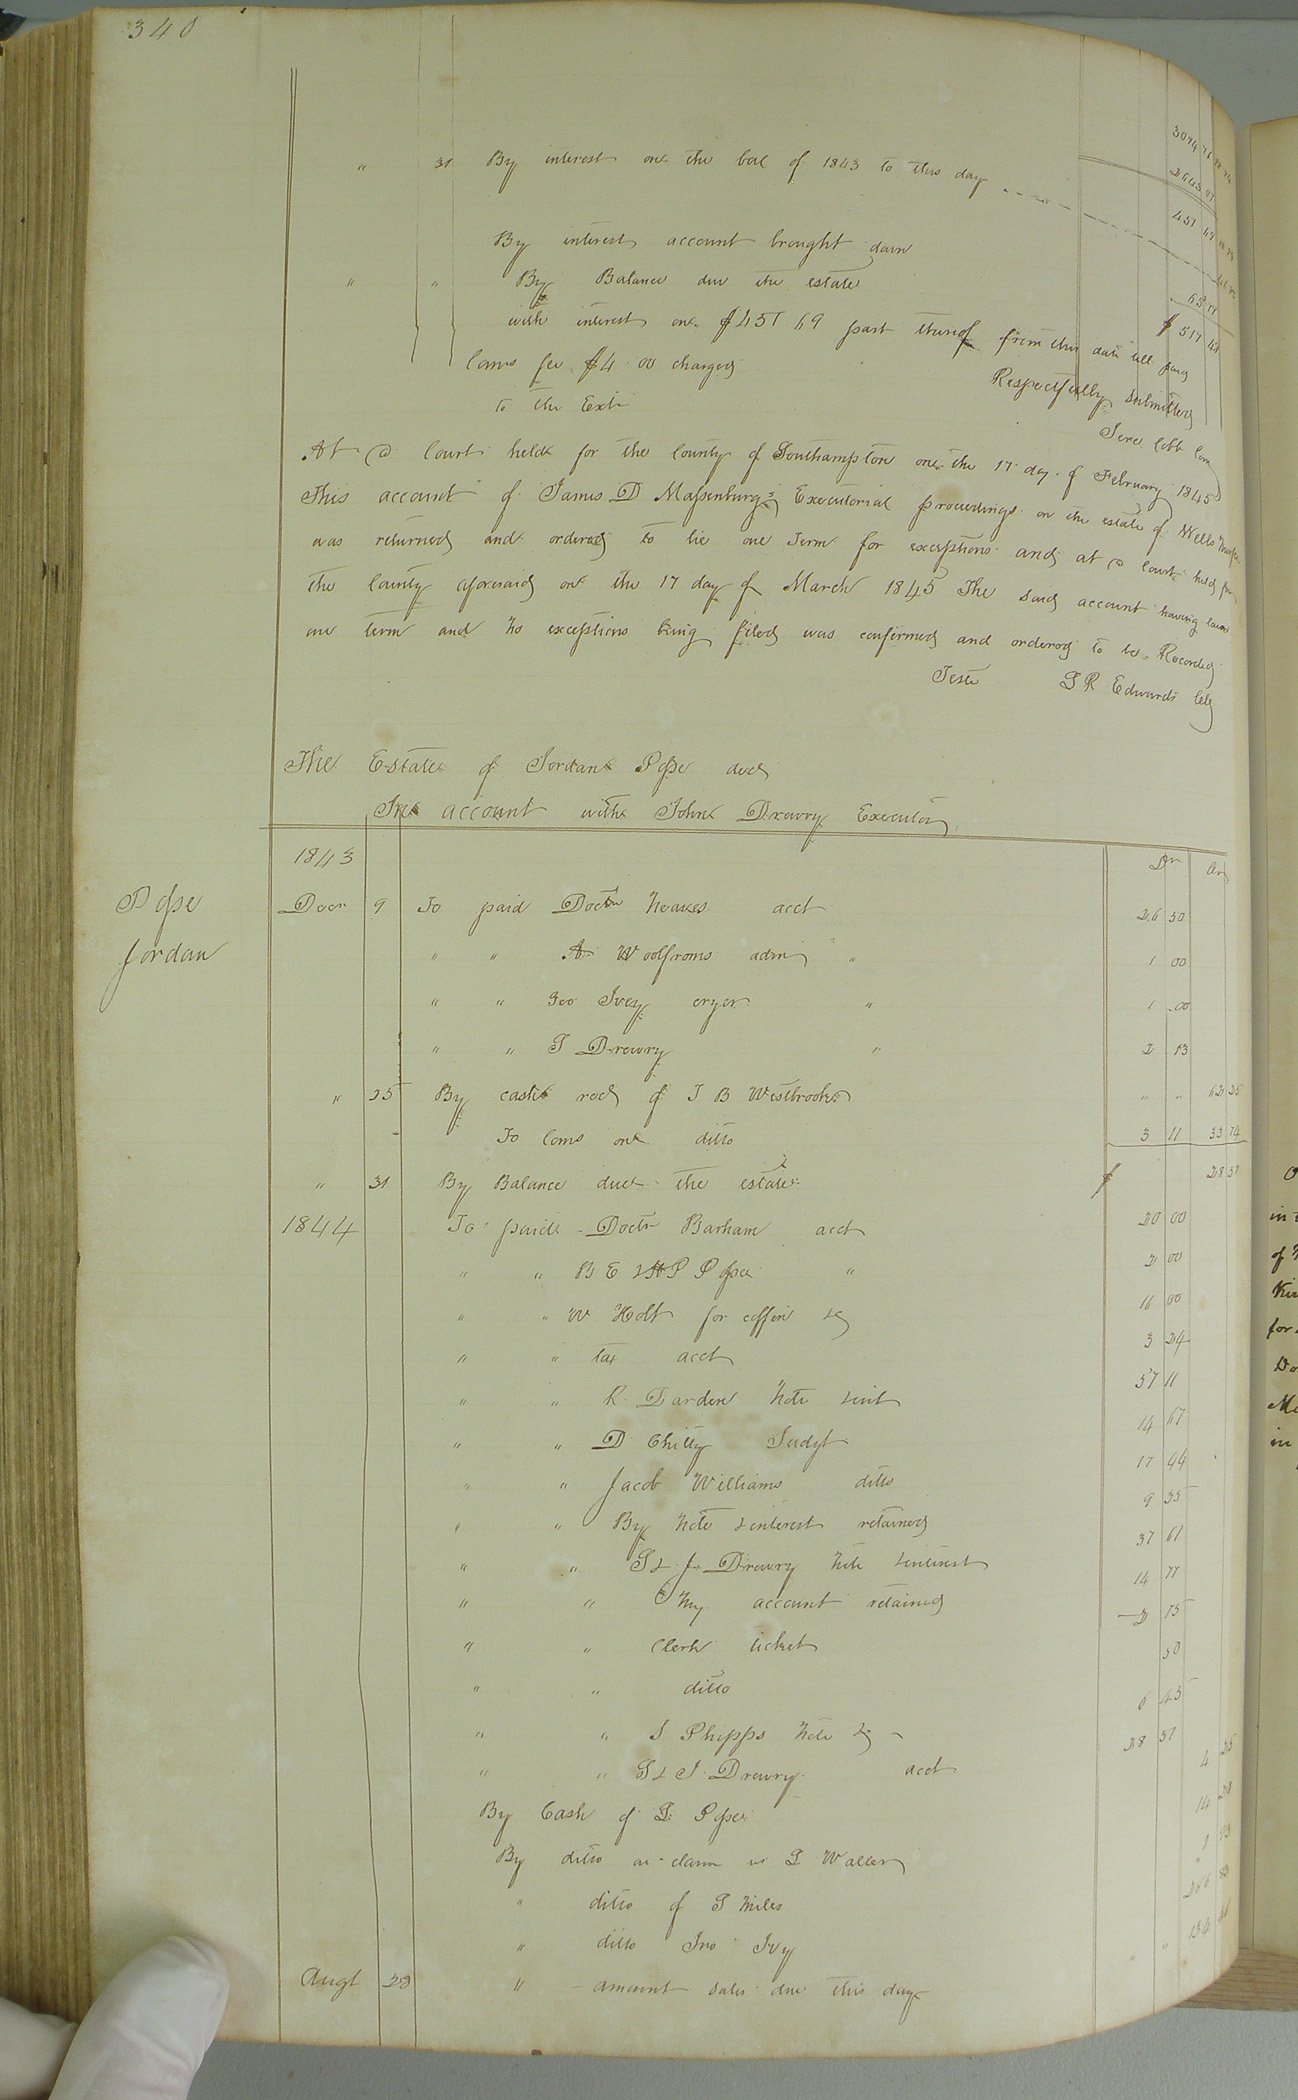 340
" 31 By interest on the bal of 1843 to this day
By interest account brought down
" " By Balance due the estate
with interest on $451 69 part thereof from this date till paid
Coms fee $4 00 charged
to the Exer
Respectfully submitted
Cobb Com
At a Court held for the County of Southampton on the 17 day of February 1845
This account of James D Massenburgs Executorial proceedings on the estate of Wells
was returned and ordered to lie one Term for exceptions and at a Court held for
the County aforesaid on the 17 day of March 1845 The said account having lain
one term and no exceptions being filed was confirmed and ordered to be Recorded
Teste L R Edwards Clk
The Estate of Jordan Pope decd
In account with John Drewry Executor
1843 Dr Cr
Pope Jordan
Decr 9 To paid Doctr Neaves acct 26 50
" " A Woolfroms admr " 1 00
" " Geo Ivey cryer " 1 00
" " S Drewry " 2 13
" 25 By cash recd of J B Westbrook " " 62 25
To Coms on ditto 3 11 33 74
" 31 By Balance due the estate $ 28 51
1844 To paid Doctr Barham acct 20 00
" " B E & H P Pope " 2 00
" " W Holt for coffin &c 16 00
" " tax acct 3 24
" " R Darden Note &int 57 11
" " D Chitty Judgt 14 67
" " Jacob Williams ditto 17 44
" " By Note &interest retained 9 35
" " S & J Drewry Note &interest 37 61
" " My account retained 14 77
" " Clerk ticket 2 75
" " ditto 50
" " S Phipps Note &c
" " S & J Drewry acct 28 57
By Cash of L Pope 4 25
By ditto on claim vs L Waller 14
" ditto of S Miles
" ditto Jno Ivy
Augt 23 " amount sales due this day " " 134